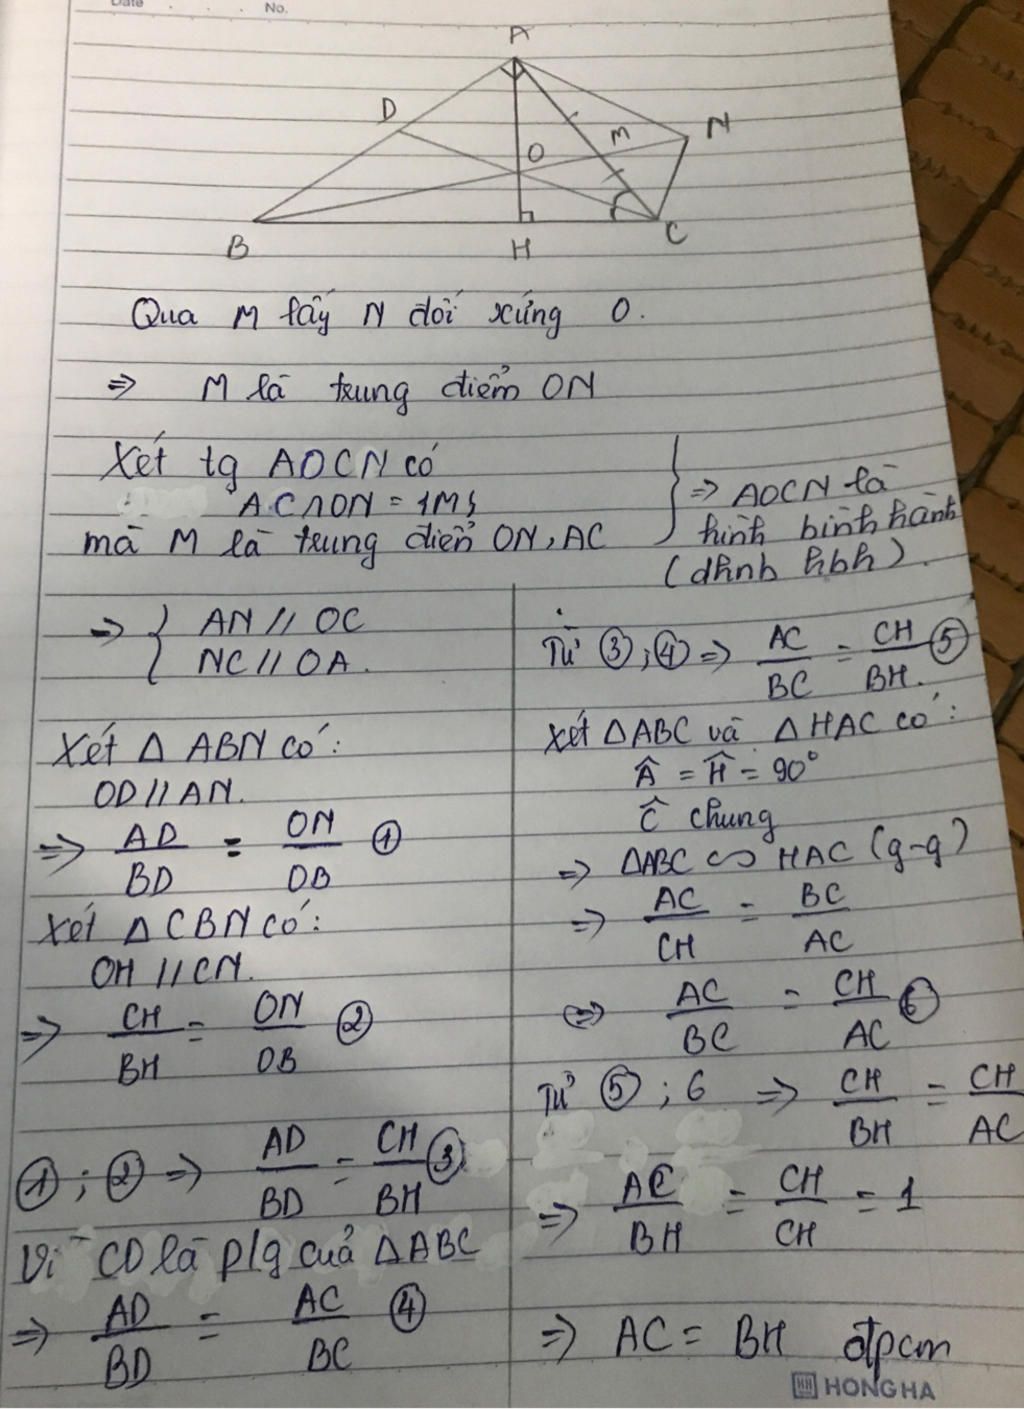 Date No.
A
D
M
N
O
B
H
C
Qua M lấy N đối xứng O.
=> M là trung điểm ON
Xét tg AOCN có
AC∩ON = {M}
mà M là trung điển ON, AC
} => AOCN là
hình bình hành
(dhnb hbh).
=> { AN // OC
NC // OA.
Xét Δ ABN có:
OD // AN.
=> AD/BD = ON/OB ①
Xét Δ CBN có:
OH // CN.
=> CH/BH = ON/OB ②
①; ② => AD/BD = CH/BH ③
Vì CD là p/g cuả ΔABC
=> AD/BD = AC/BC ④
Từ ③; ④ => AC/BC = CH/BH. ⑤
Xét ΔABC và ΔHAC có:
Â = Ĥ = 90°
Ĉ chung
=> ΔABC ∽ HAC (g-g)
=> AC/CH = BC/AC
<=> AC/BC = CH/AC ⑥
Từ ⑤; 6 => CH/BH = CH/AC
=> AC/BH = CH/CH = 1
=> AC = BH đpcm
HH HONG HA